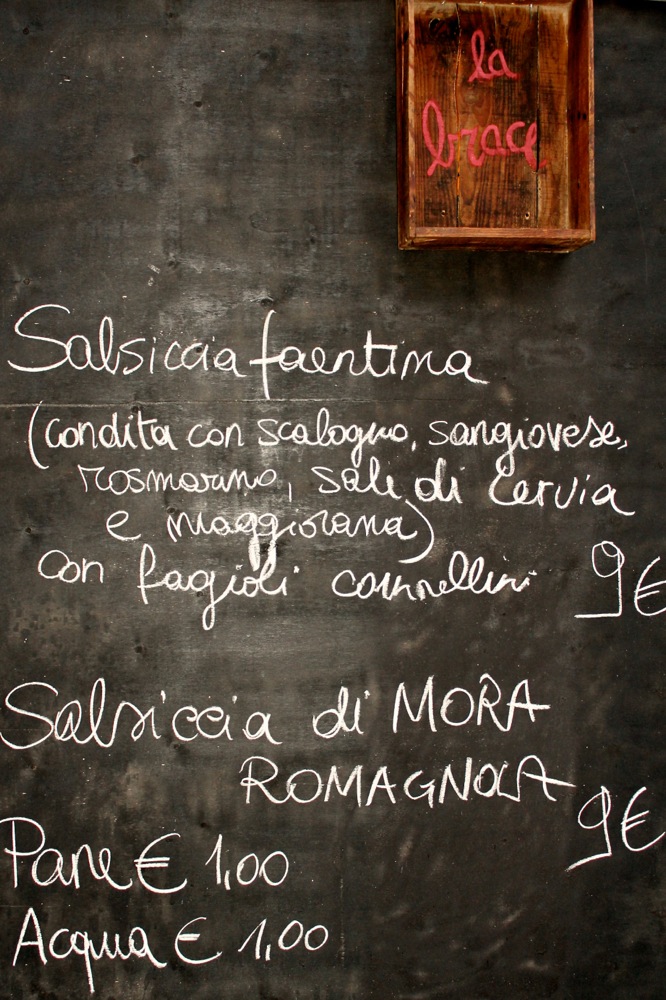 la
brace
Salsiccia faentina
(condita con scalogno, sangiovese,
rosmarino, sale di Cervia
e maggiorana)
con fagioli cannellini 9€
Salsiccia di MORA
ROMAGNOLA
9€
Pane € 1,00
Acqua € 1,00